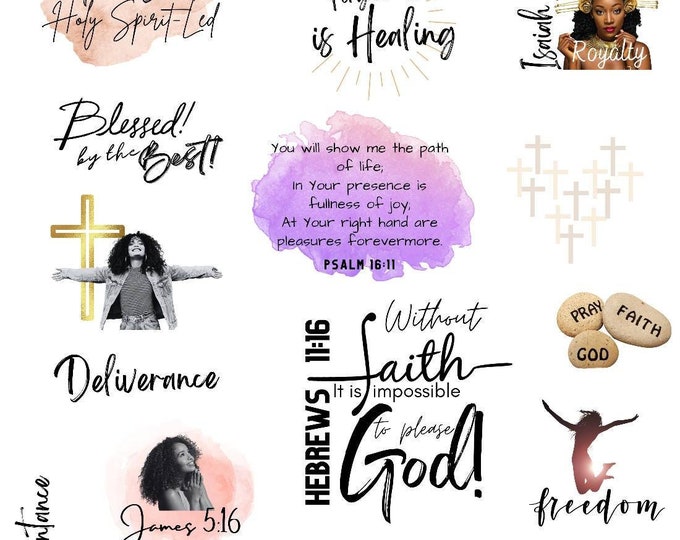 Holy Spirit-Led
is Healing
Isaiah
Royalty
Blessed!
by the Best!
You will show me the path
of life;
In Your presence is
fullness of joy;
At Your right hand are
pleasures forevermore.
PSALM 16:11
Deliverance
HEBREWS 11:16
Without
faith
It is impossible
to please
God!
PRAY
FAITH
GOD
James 5:16
freedom